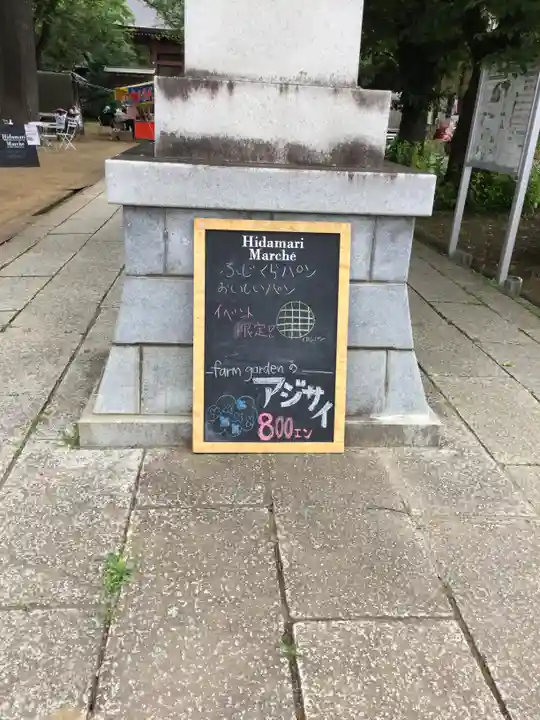 Hidamari
Marché
ふじくらパン
おいしいパン
イベント
限定!!
farm gardenの
アジサイ
800エン
Hidamari
Marché